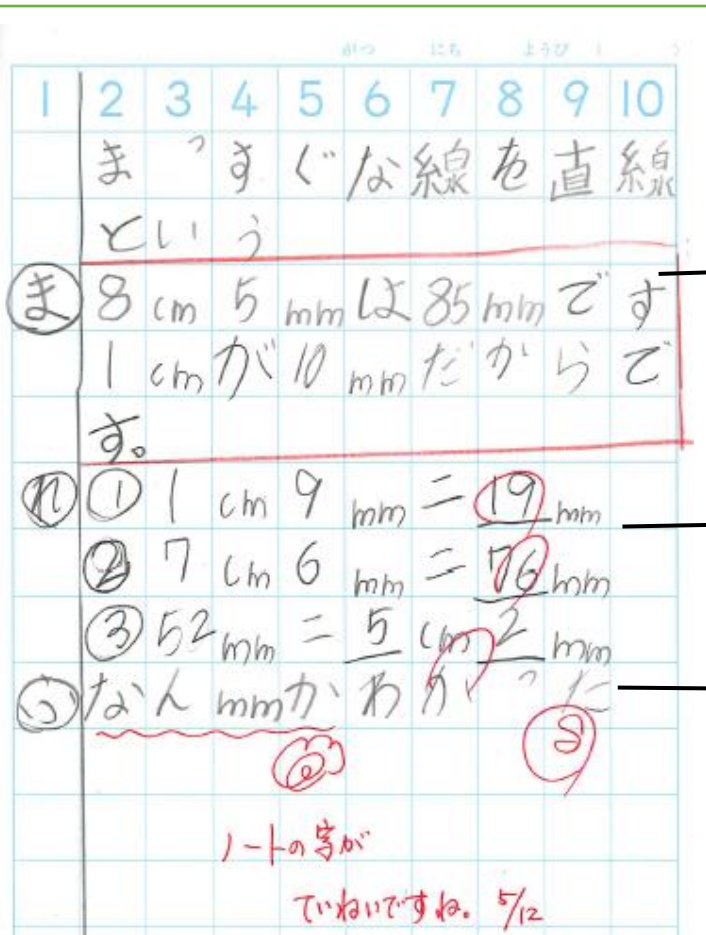 がつ にち ようび ( )
1 2 3 4 5 6 7 8 9 10
まっすぐな線を直線
という
ま 8cm5mmは85mmです
1cmが10mmだからで
す。
れ ① 1cm9mm=19mm
② 7cm6mm=76mm
③ 52mm=5cm2mm
なんmmかわかった
S
ノートの字が
ていねいですね。 5/12